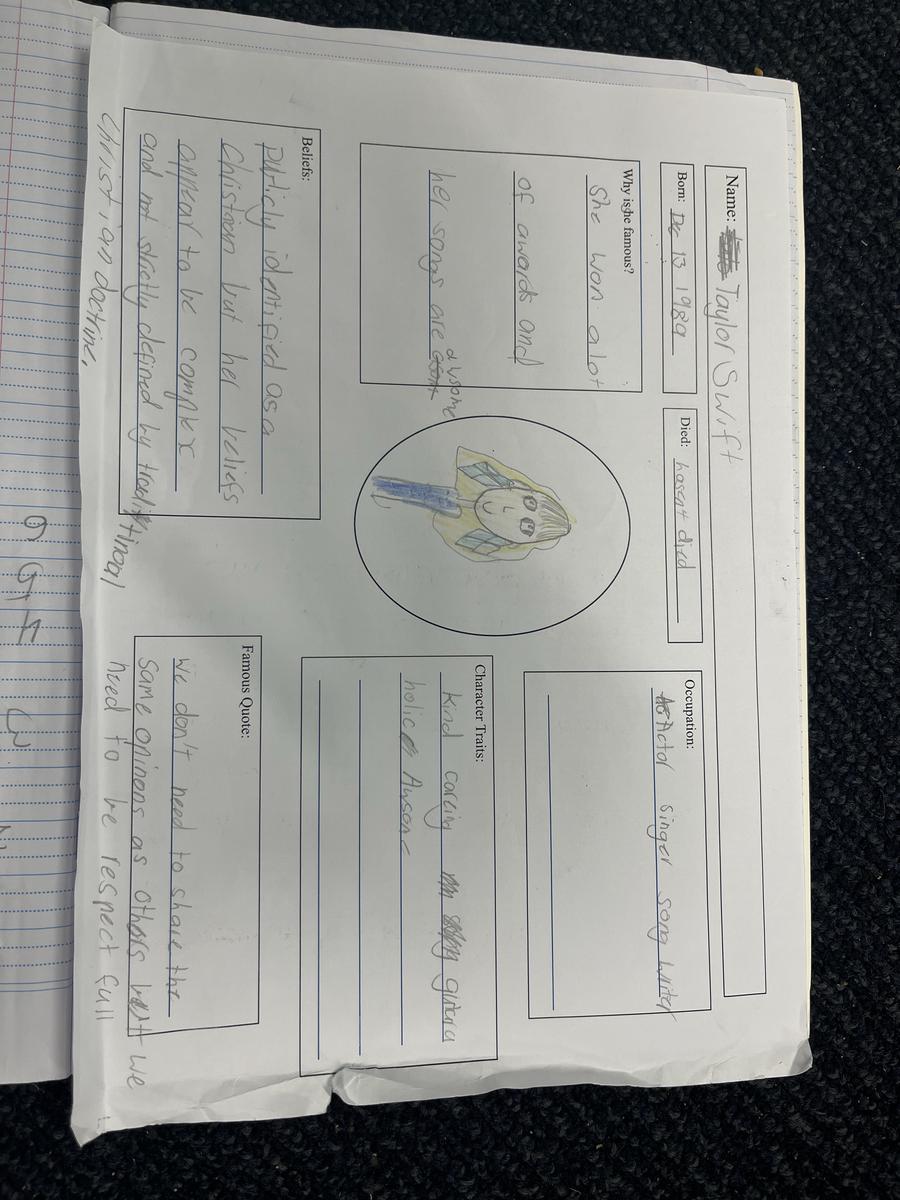 Name: Taylor Swift
Born: De 13 1989
Died: hasent died
Occupation:
Actor singer song writer
Why is she famous?
She won alot
of awards and
her songs are awsome
Character Traits:
Kind carcing
holic
Beliefs:
Publicly identified as a
Christian but her beliefs
appear to be complex
and not strictly defined by
Christian doctrine,
Famous Quote:
We don't need to share the
same opinens as others but we
need to be respect full